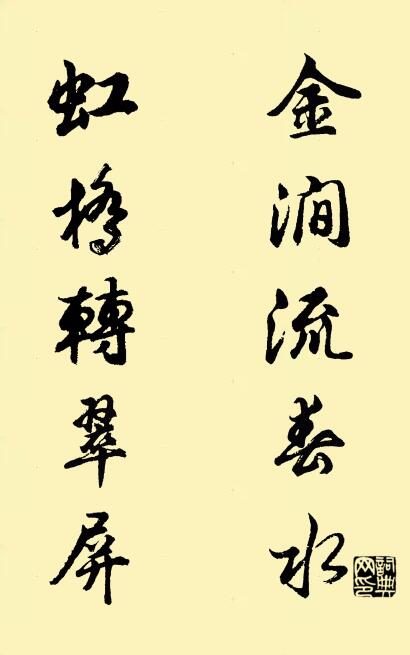 金澗流春水
虹橋轉翠屏
詞典
网印